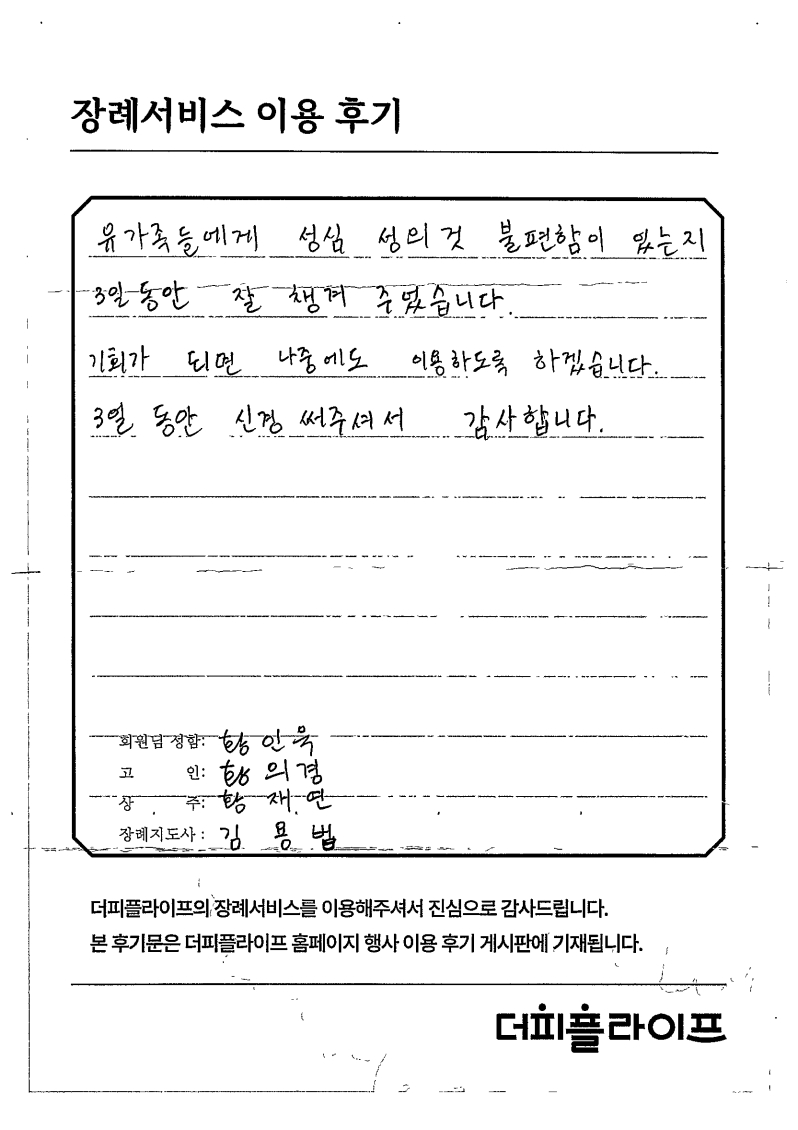 장례서비스 이용 후기
유가족들에게 성심 성의것 불편함이 있는지
3일 동안 잘 챙겨 주었습니다.
기회가 되면 나중에도 이용하도록 하겠습니다.
3일 동안 신경 써주셔서 감사합니다.
회원님 성함: 황인욱
고 인: 황의경
상 주: 황재연
장례지도사: 김용법
더피플라이프의 장례서비스를 이용해주셔서 진심으로 감사드립니다.
본 후기문은 더피플라이프 홈페이지 행사 이용 후기 게시판에 기재됩니다.
더피플라이프